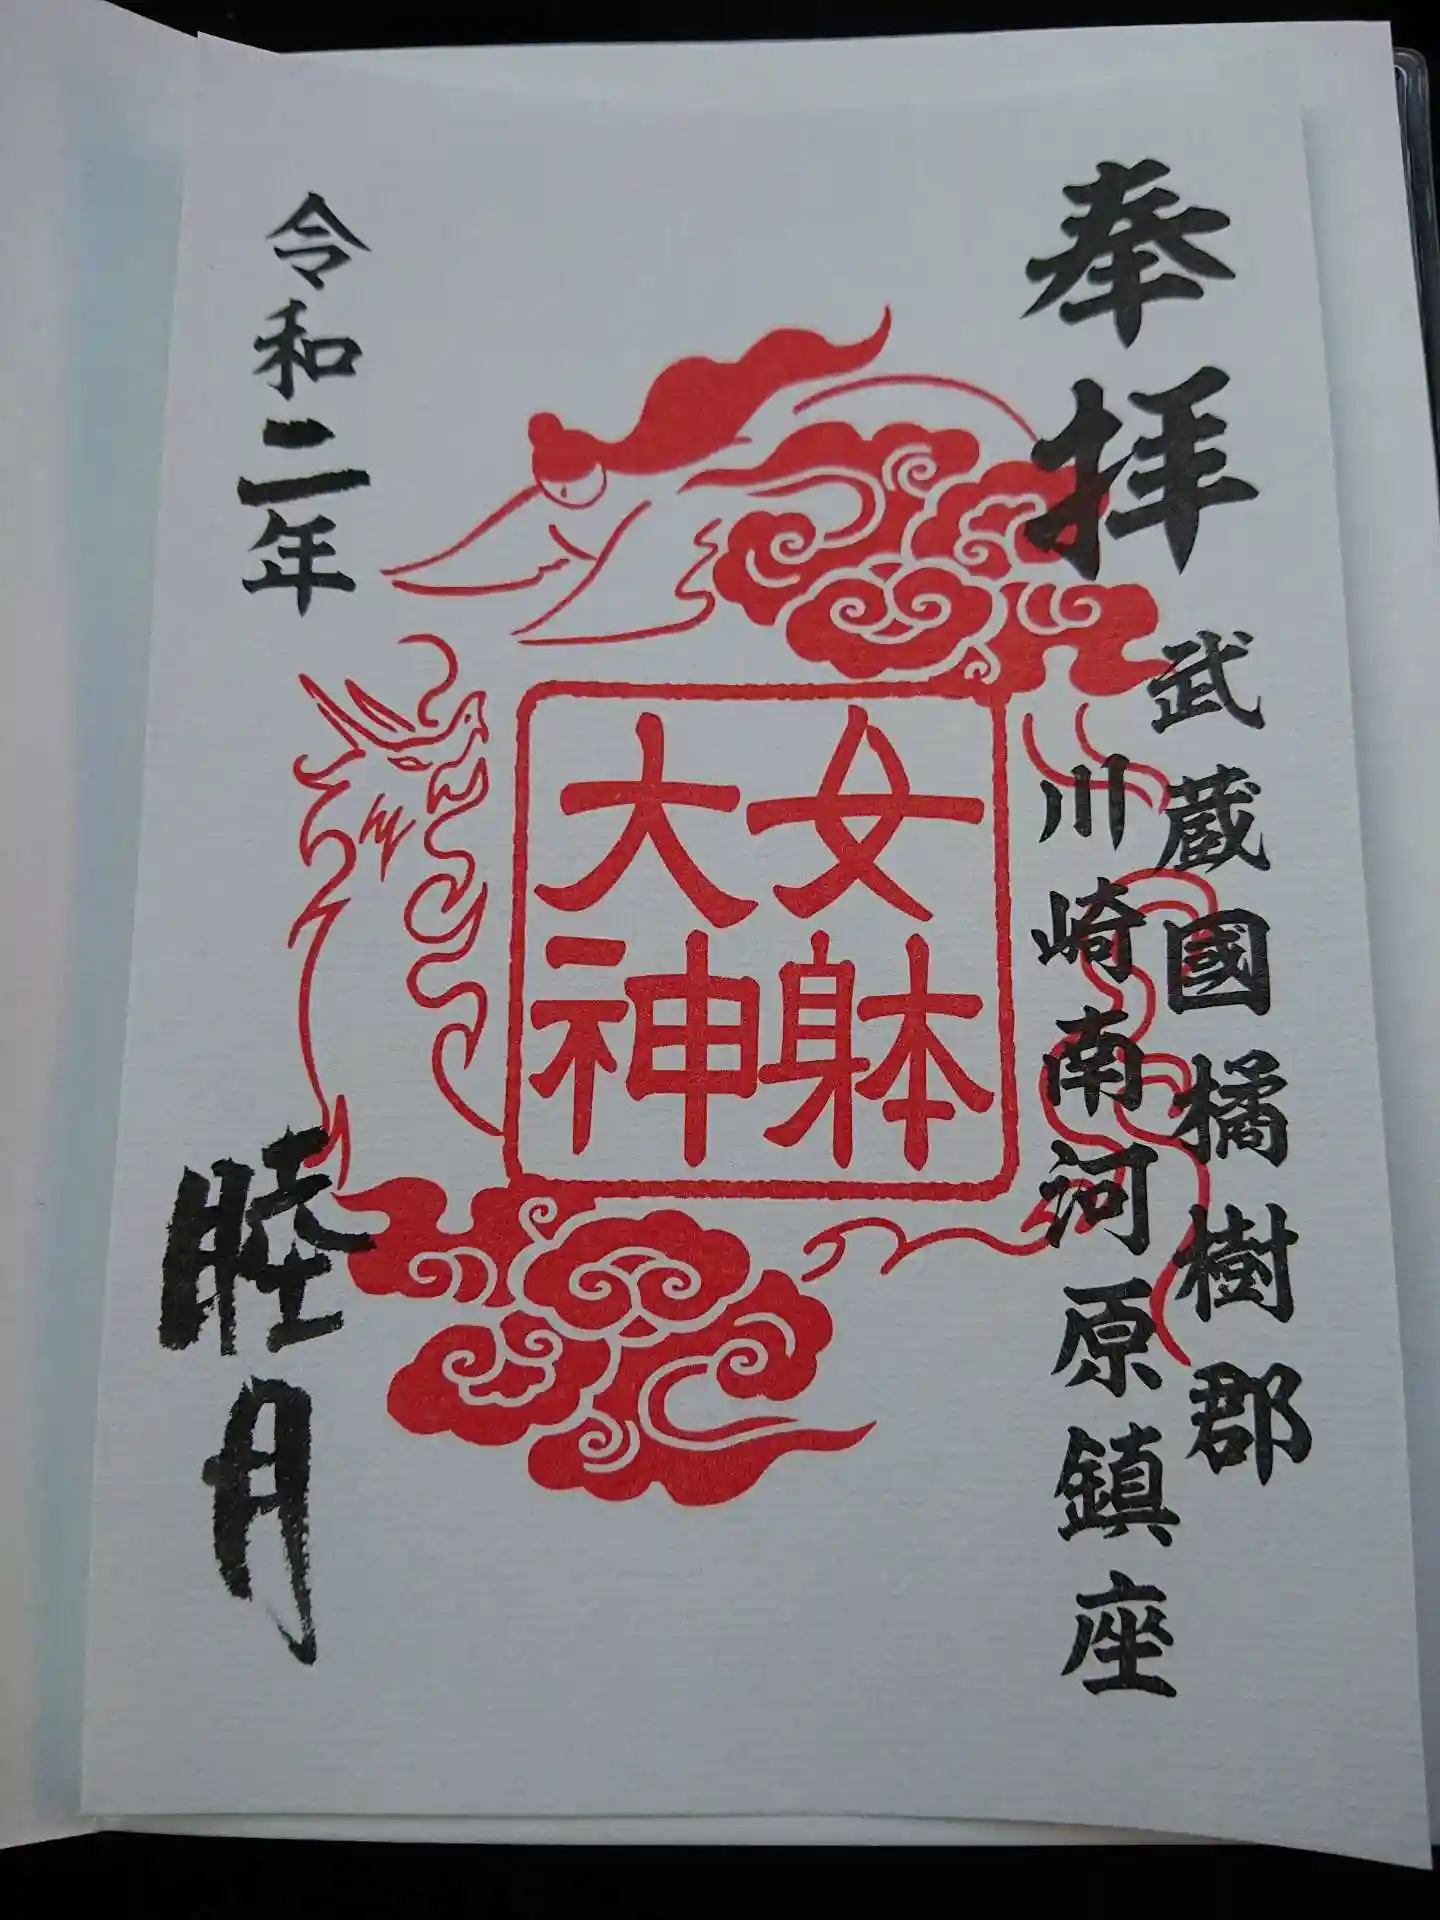 奉拝
武蔵國橘樹郡
川崎南河原鎮座
女躰
大神
令和二年
睦月